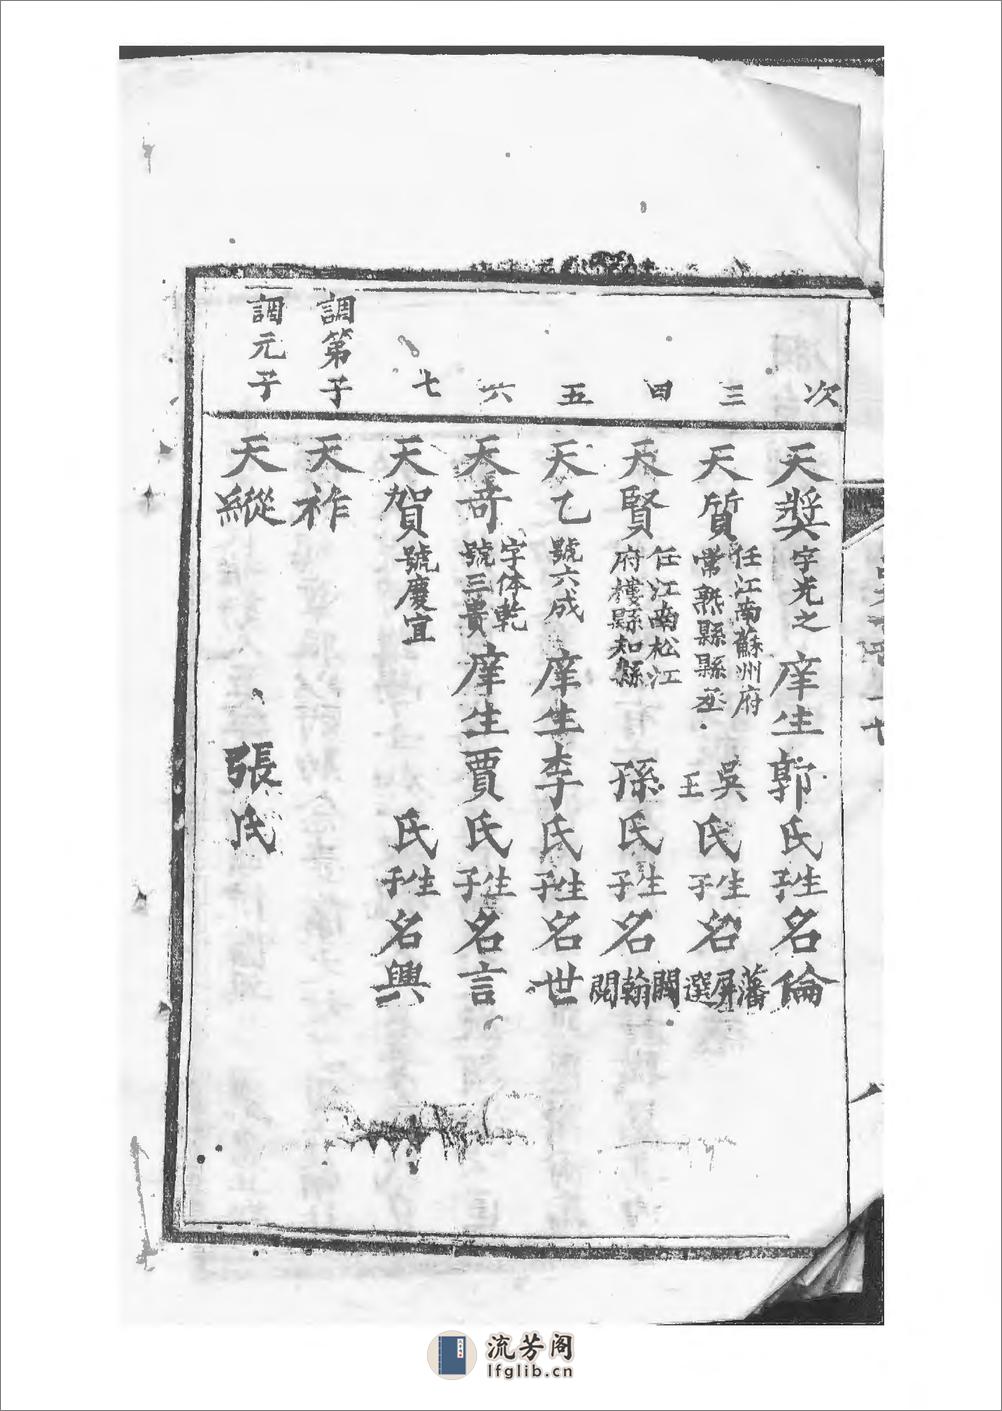 次 天獎 字光之 庠生 郭氏 生子 名倫
三 天質 任江南蘇州府常熟縣縣丞 吳王氏 生子 名藩屏選
四 天賢 任江南松江府樓縣知縣 孫氏 生子 名闕翰閱
五 天乙 號六成 庠生 李氏 生子 名世
六 天奇 字体乾號三貴 庠生 賈氏 生子 名言
七 天賀 號慶宜 氏 生子 名興
調第子 天祚
調元子 天縱 張氏
流芳阁
lfglib.cn